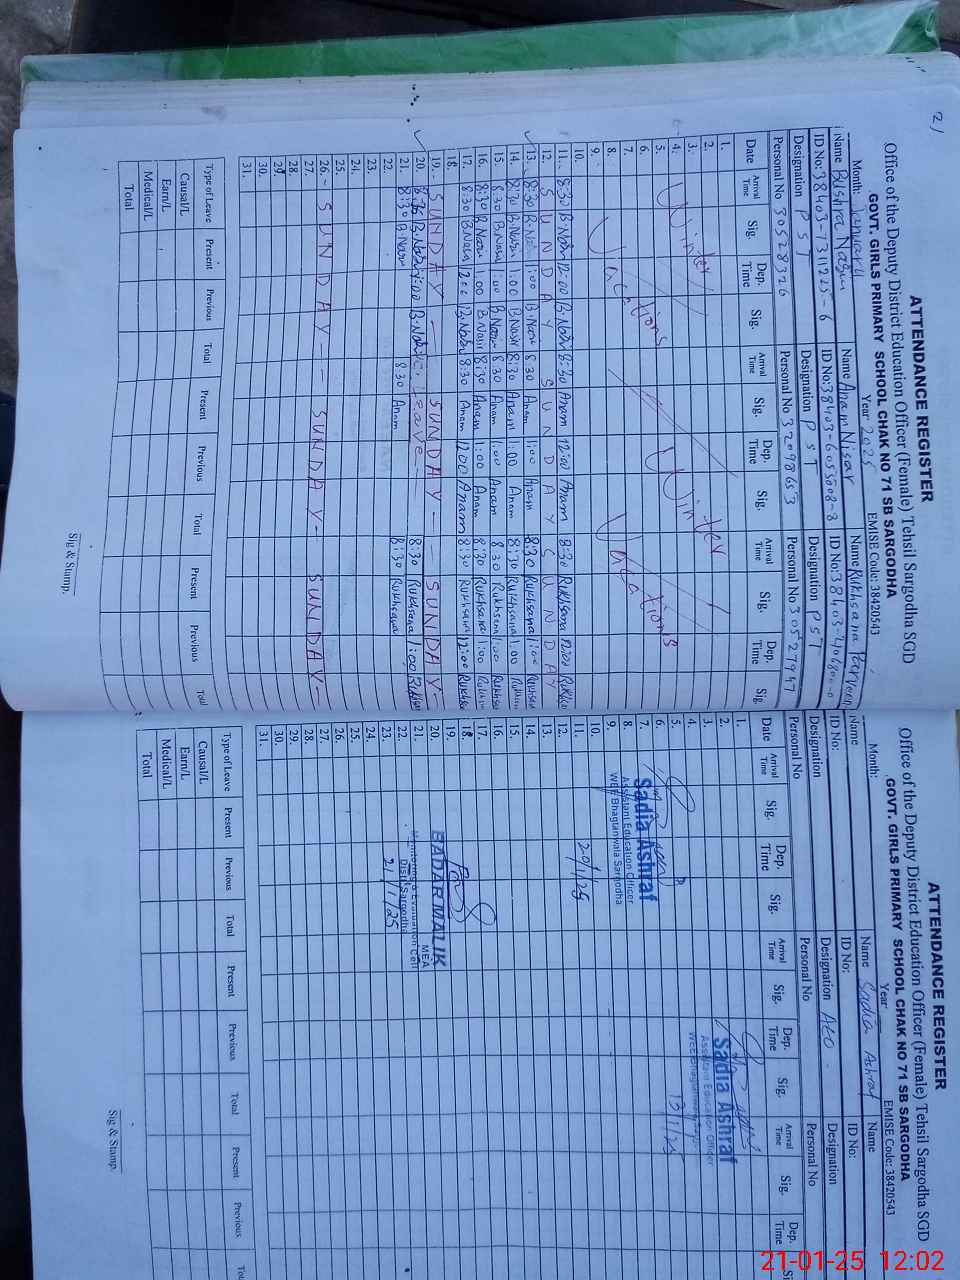 2)
ATTENDANCE REGISTER
Office of the Deputy District Education Officer (Female) Tehsil Sargodha SGD
GOVT. GIRLS PRIMARY SCHOOL CHAK NO 71 SB SARGODHA
Month: January Year 2025 EMISE Code: 38420543
Name Bushra Nasir Name Anam Nisar Name Rukhsana
ID No: 38403-7311225-6 ID No: 38403-6055008-8 ID No: 38403-2406800-0
Designation PST Designation PST Designation PST
Personal No 30528326 Personal No 32098653 Personal No 30527947
Date Arrival Time Sig. Dep. Time Sig. Arrival Time Sig. Dep. Time Sig. Arrival Time Sig. Dep. Time Sig.
1.
2.
3.
4. Winter Winter
5.
6.
7. Vacations Vacations
8.
9.
10.
11. 8:30 B.Nasir 12:00 B.Nasir 8:30 Anam 12:00 Anam 8:30 Rukhsana 12:00
12. SUNDAY SUNDAY SUNDAY
13. 8:30 B.Nasir 1:00 B.Nasir 8:30 Anam 1:00 Anam 8:30 Rukhsana 1:00
14. 8:30 B.Nasir 1:00 B.Nasir 8:30 Anam 1:00 Anam 8:30 Rukhsana 1:00
15. 8:30 B.Nasir 1:00 B.Nasir 8:30 Anam 1:00 Anam 8:30 Rukhsana 1:00
16. 8:30 B.Nasir 1:00 B.Nasir 8:30 Anam 1:00 Anam 8:30 Rukhsana 1:00
17. 8:30 B.Nasir 12:00 B.Nasir 8:30 Anam 12:00 Anam 8:30 Rukhsana 12:00
18.
19. SUNDAY SUNDAY SUNDAY
20. B.Nasir 1:00 B.Nasir Leave 8:30 Rukhsana 1:00
21. 8:30 B.Nasir 8:30 Anam 8:30 Rukhsana
22.
23.
24.
25.
26. SUNDAY SUNDAY SUNDAY
27.
28.
29.
30.
31.
Type of Leave Present Previous Total Present Previous Total Present Previous Total
Causal/L
Earn/L
Medical/L
Total
Sig & Stamp.
ATTENDANCE REGISTER
Office of the Deputy District Education Officer (Female) Tehsil Sargodha SGD
GOVT. GIRLS PRIMARY SCHOOL CHAK NO 71 SB SARGODHA
Month: Year EMISE Code: 38420543
Name Name Sadia Ashraf Name
ID No: ID No: ID No:
Designation Designation AEO Designation
Personal No Personal No Personal No
Date Arrival Time Sig. Dep. Time Sig. Arrival Time Sig. Dep. Time Sig. Arrival Time Sig. Dep. Time
1.
2.
3.
4.
5.
6.
7.
8.
9.
10.
11.
12.
13.
14.
15.
16.
17.
18.
19.
20.
21.
22.
23.
24.
25.
26.
27.
28.
29.
30.
31.
Sadia Ashraf
Assistant Education Officer
13/1/25
Sadia Ashraf
Assistant Education Officer
WEE Bhagtanwala Sargodha
20/1/25
BADAR MALIK
MEA
Monitoring & Evaluation Cell
Distt Sargodha
21/1/25
Type of Leave Present Previous Total Present Previous Total Present Previous
Causal/L
Earn/L
Medical/L
Total
Sig & Stamp.
21-01-25 12:02